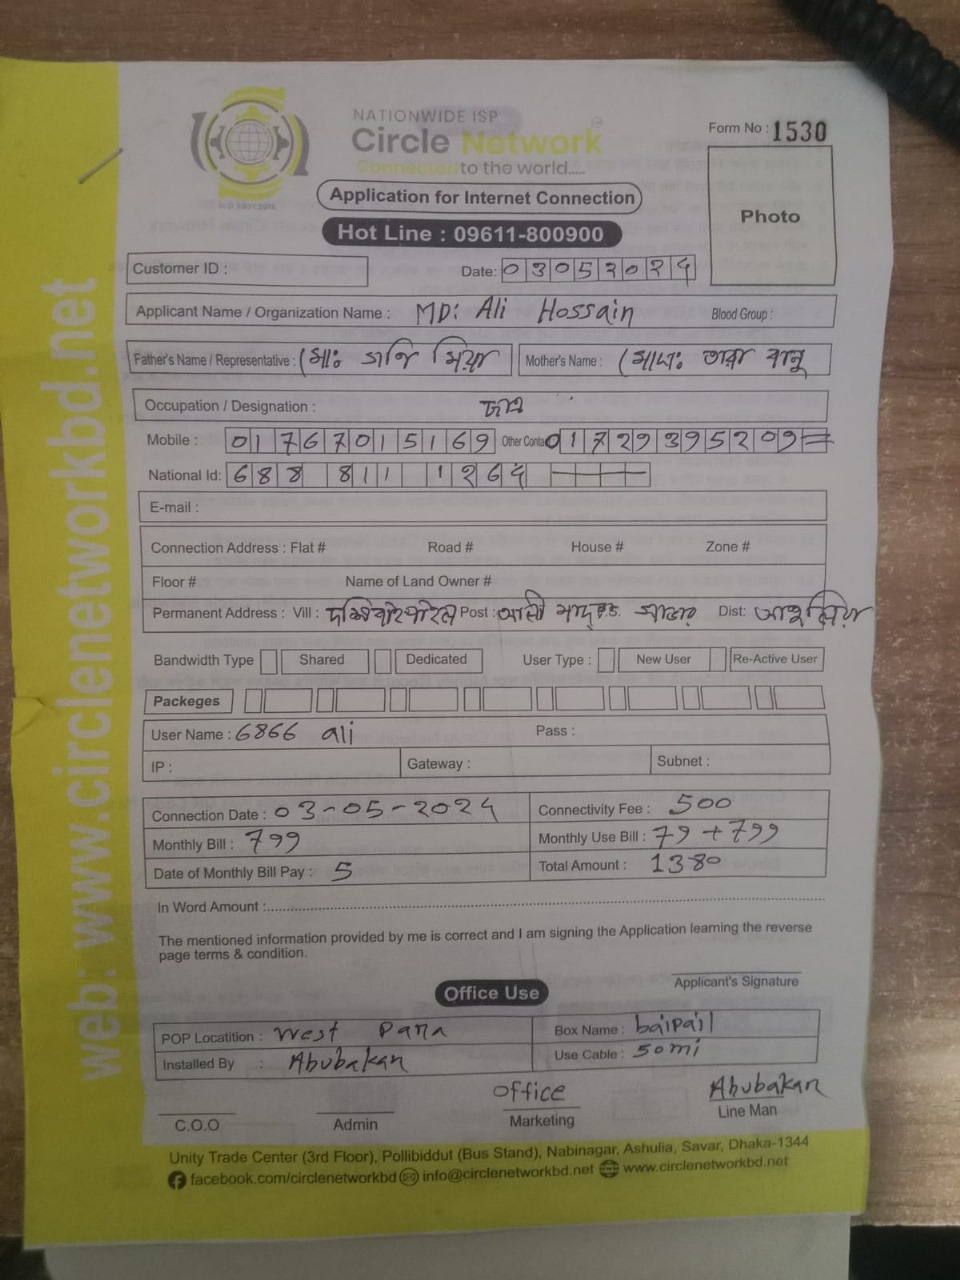 NATIONWIDE ISP
Circle Network
Connected to the world.....
Form No : 1530
Application for Internet Connection
Photo
Hot Line : 09611-800900
Customer ID :
Date: 03052024
Applicant Name / Organization Name : MD: Ali Hossain Blood Group :
Father's Name / Representative : মোঃ গনি মিয়া Mother's Name : মোছাঃ তারা বানু
Occupation / Designation :
Mobile : 01767015169 Other Contact 01729395209
National Id: 688 811 1264
E-mail :
Connection Address : Flat # Road # House # Zone #
Floor # Name of Land Owner #
Permanent Address : Vill : Post : সাভার Dist: আশুলিয়া
Bandwidth Type Shared Dedicated User Type : New User Re-Active User
Packeges
User Name : 6866 ali Pass :
IP : Gateway : Subnet :
Connection Date : 03-05-2024 Connectivity Fee : 500
Monthly Bill : 799 Monthly Use Bill : 79 + 799
Date of Monthly Bill Pay : 5 Total Amount : 1380
In Word Amount :
The mentioned information provided by me is correct and I am signing the Application learning the reverse
page terms & condition.
Applicant's Signature
Office Use
POP Locatition : West Para Box Name : baipail
Installed By : Abubakar Use Cable : 50mi
Office Abubakar
C.O.O Admin Marketing Line Man
Unity Trade Center (3rd Floor), Pollibiddut (Bus Stand), Nabinagar, Ashulia, Savar, Dhaka-1344
facebook.com/circlenetworkbd info@circlenetworkbd.net www.circlenetworkbd.net
web: www.circlenetworkbd.net